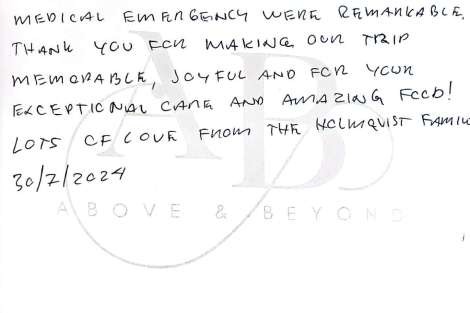 MEDICAL EMERGENCY WERE REMARKABLE.
THANK YOU FOR MAKING OUR TRIP
MEMORABLE, JOYFUL AND FOR YOUR
EXCEPTIONAL CARE AND AMAZING FOOD!
LOTS OF LOVE FROM THE HOLMQVIST FAMIL
30/7/2024
AB
ABOVE & BEYOND